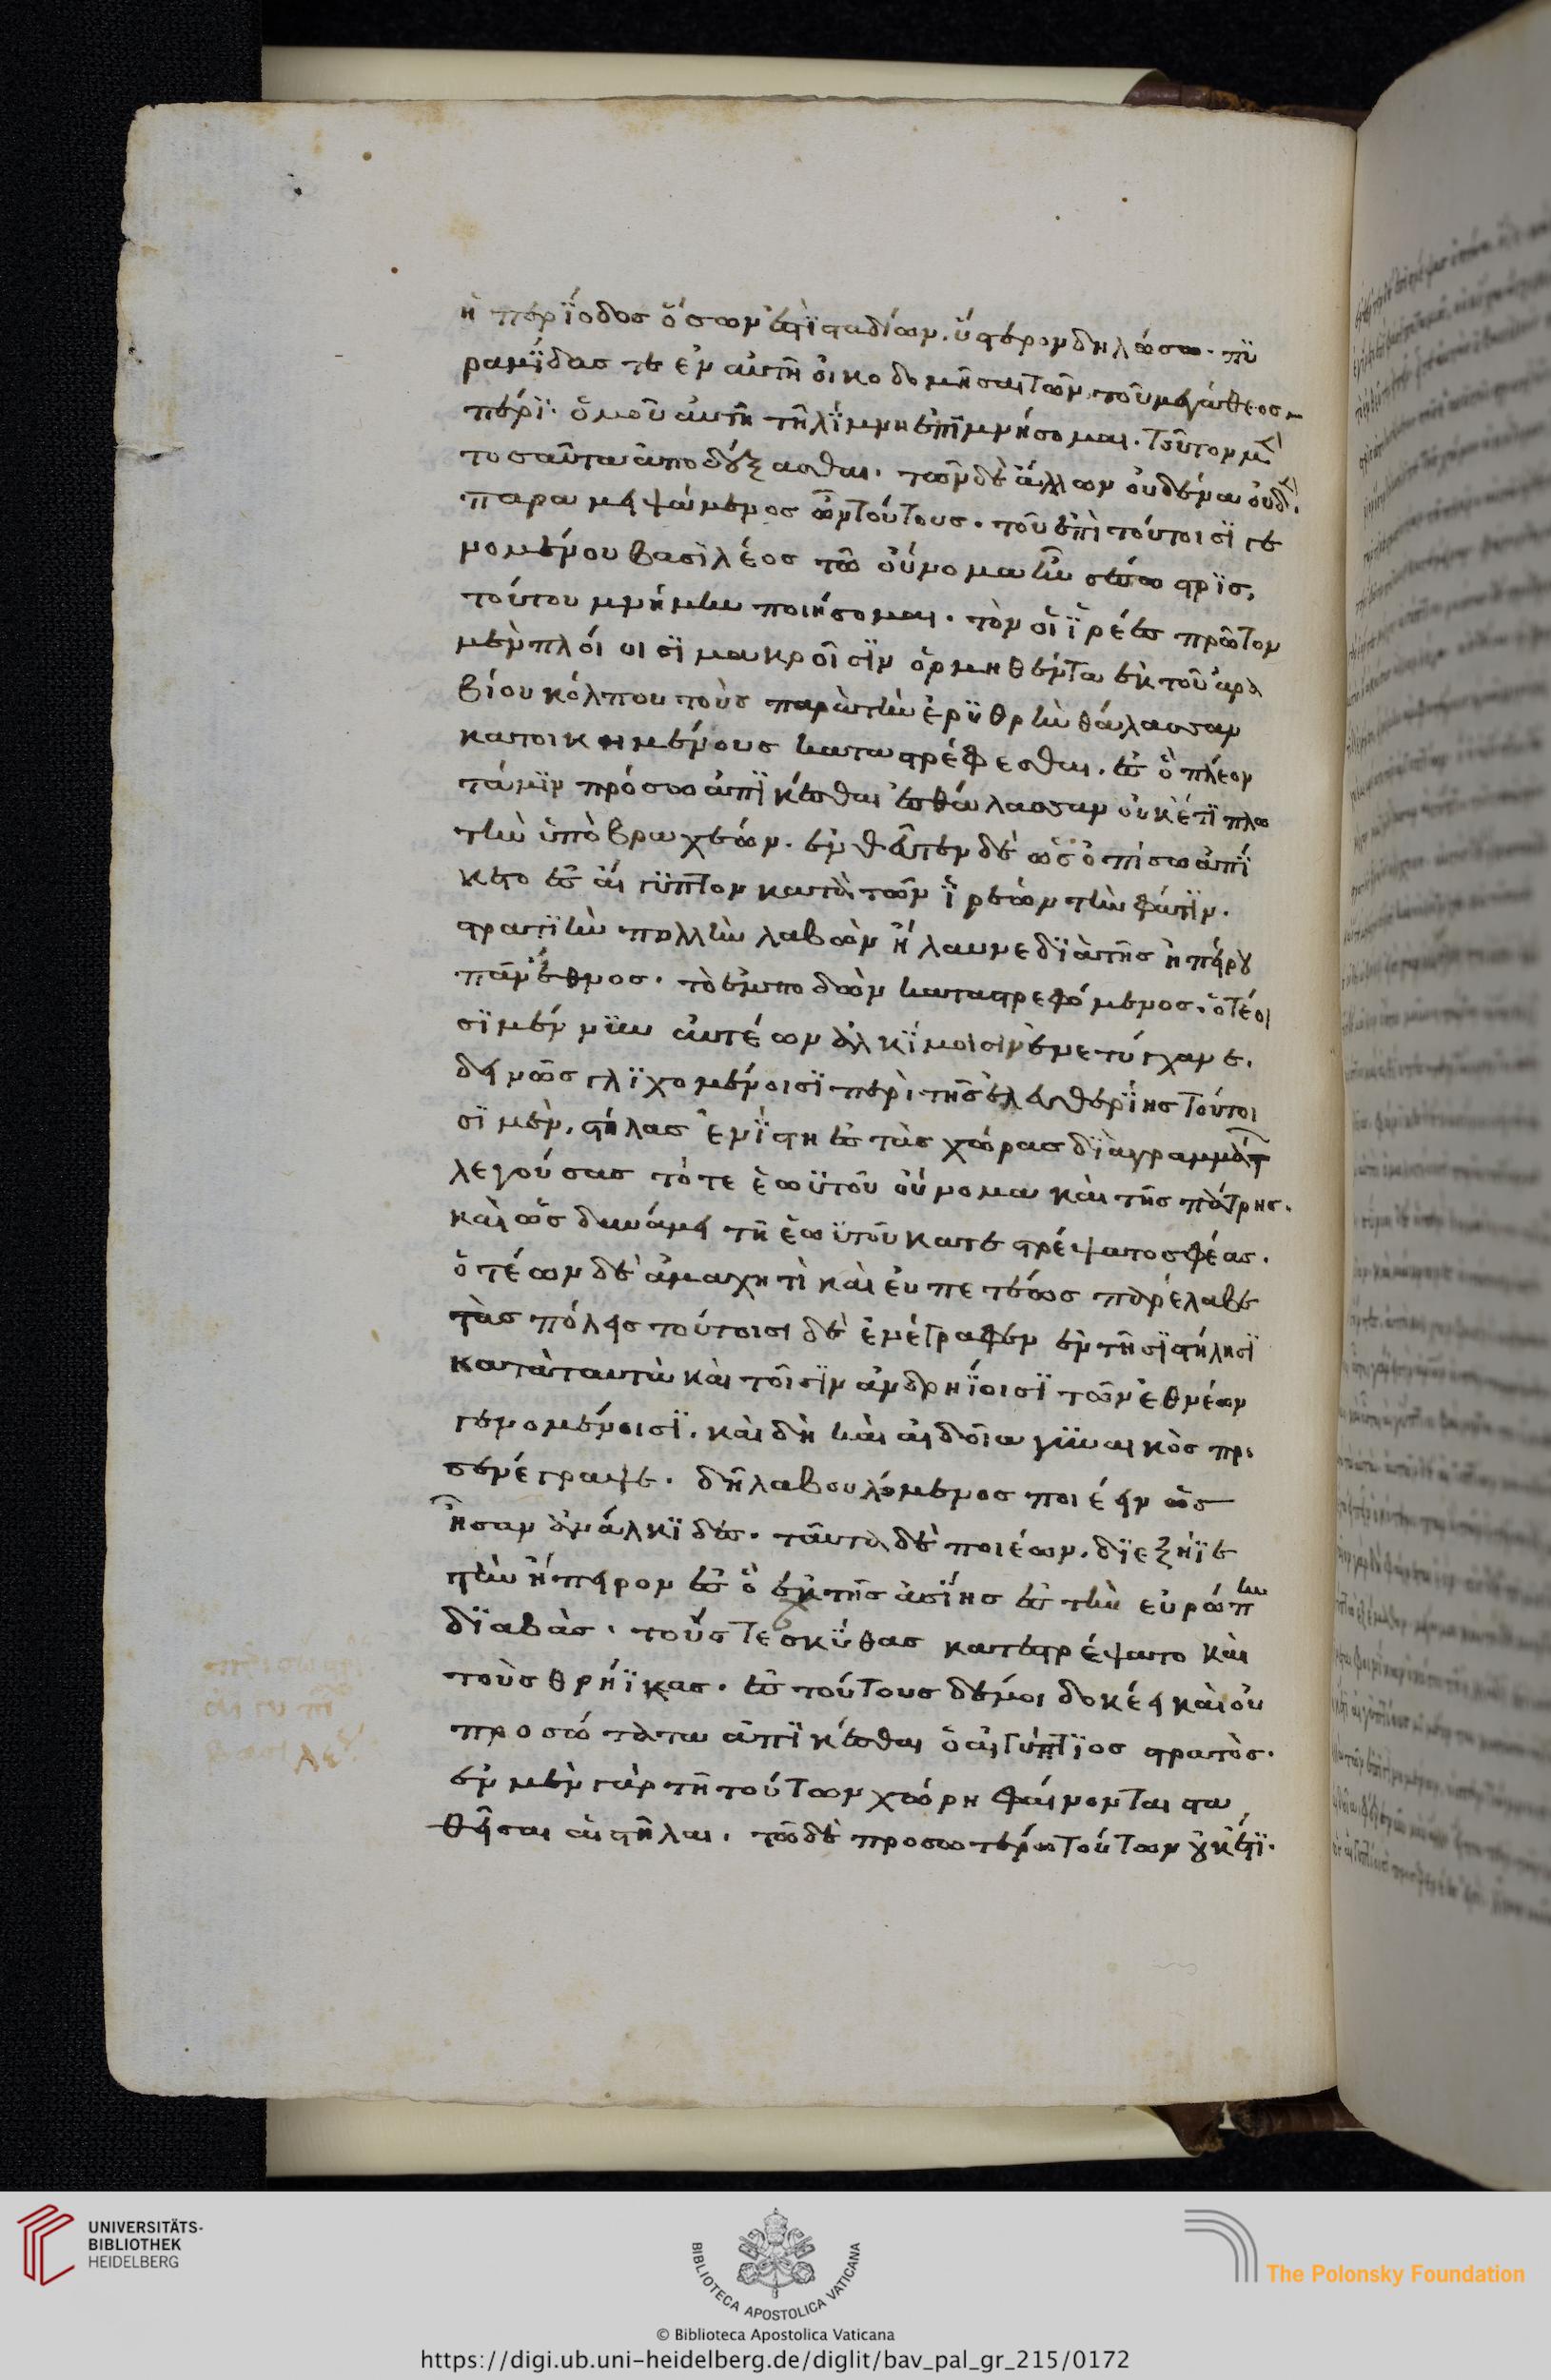 ἡ περίοδος ὅσων ἐστὶ σταδίων. ὕστερον δηλώσω. πυ
ραμίδας τε ἐν αὐτῆ οἰκοδομῆσαι τῶν τοῦ μεγάθεος
πέρι. ὁμοῦ αὐτῆ τῆ λίμνη ἐπιμνήσομαι. τοῦτον μὲν
τοσαῦτα ἀποδείξασθαι. τῶν δὲ ἄλλων οὐδένα οὐδέν.
παραμειψάμενος ὦν τούτους. τοῦ ἐπὶ τούτοισι γε
νομένου βασιλέος τῶ οὔνομα ἦν σέσωστρις,
τούτου μνήμην ποιήσομαι. τὸν οἱ ἱρέες πρῶτον
μὲν πλοίοισι μακροῖσιν ὁρμηθέντα ἐκ τοῦ ἀρα
βίου κόλπου τοὺς παρὰ τὴν ἐρυθρὴν θάλασσαν
κατοικημένους καταστρέφεσθαι. ἐς ὃ πλέον
τά μιν πρόσω ἀπικέσθαι ἐς θάλασσαν οὐκέτι πλω
τὴν ὑπὸ βραχέων. ἐνθεῦτεν δὲ ὡς ὀπίσω ἀπί
κετο ἐς αἴγυπτον κατὰ τῶν ἱρέων τὴν φάτιν.
στρατιὴν πολλὴν λαβὼν ἤλαυνε διὰ τῆς ἠπείρου
πᾶν ἔθνος. τὸ ἐμποδὼν καταστρεφόμενος. ὁτέοι
σι μέν νυν αὐτέων ἀλκίμοισιν ἐνετύγχανε.
δεινῶς γλιχομένοισι περὶ τῆς ἐλευθερίης τούτοι
σι μὲν, στήλας ἐνίστη ἐς τὰς χώρας διὰ γραμμάτων
λεγούσας τό τε ἑωυτοῦ οὔνομα καὶ τῆς πάτρης.
καὶ ὡς δυνάμει τῆ ἑωυτοῦ κατεστρέψατο σφέας.
ὁτέων δὲ ἀμαχητὶ καὶ εὐπετέως παρέλαβε
τὰς πόλεις τούτοισι δὲ ἐνέγραφεν ἐν τῆσι στήλησι
κατὰ ταυτὰ καὶ τοῖσιν ἀνδρηίοισι τῶν ἐθνέων
γενομένοισι. καὶ δὴ καὶ αἰδοῖα γυναικὸς προ
σενέγραψε. δῆλα βουλόμενος ποιέειν ὡς
ἦσαν ἀνάλκιδες. ταῦτα δὲ ποιέων. διεξήϊε
τὴν ἤπειρον ἐς ὃ ἐκ τῆς ἀσίης ἐς τὴν εὐρώπην
διαβὰς. τούς τε σκύθας κατεστρέψατο καὶ
τοὺς θρήϊκας. ἐς τούτους δέ μοι δοκέει καὶ οὐ
προσώτατα ἀπικέσθαι ὁ αἰγύπτιος στρατὸς.
ἐν μὲν γὰρ τῆ τούτων χώρη φαίνονται στα
θεῖσαι αἱ στῆλαι. τὸ δὲ προσωτέρω τούτων οὐκέτι.
UNIVERSITÄTS-
BIBLIOTHEK
HEIDELBERG
BIBLIOTECA APOSTOLICA VATICANA
The Polonsky Foundation
© Biblioteca Apostolica Vaticana
https://digi.ub.uni-heidelberg.de/diglit/bav_pal_gr_215/0172